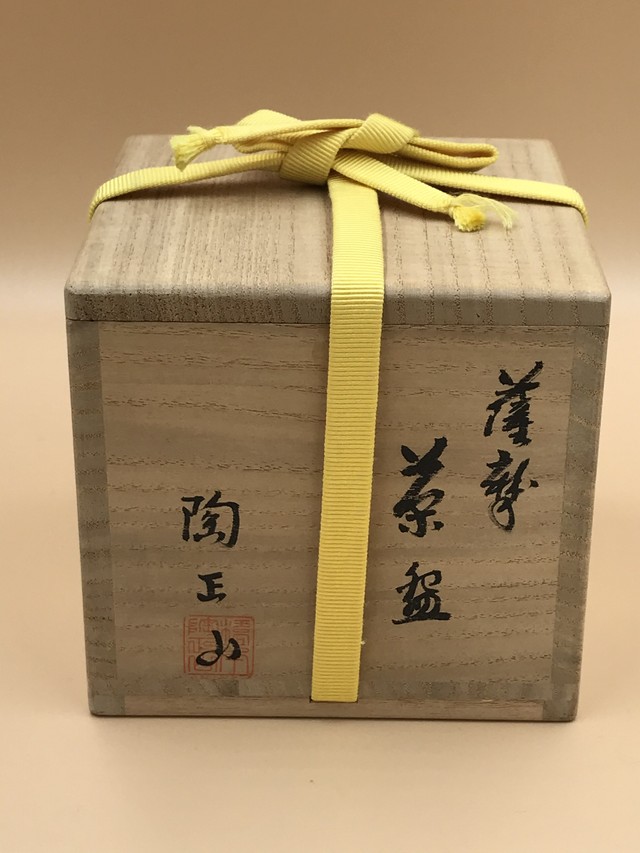 薩摩
茶盌
陶正山